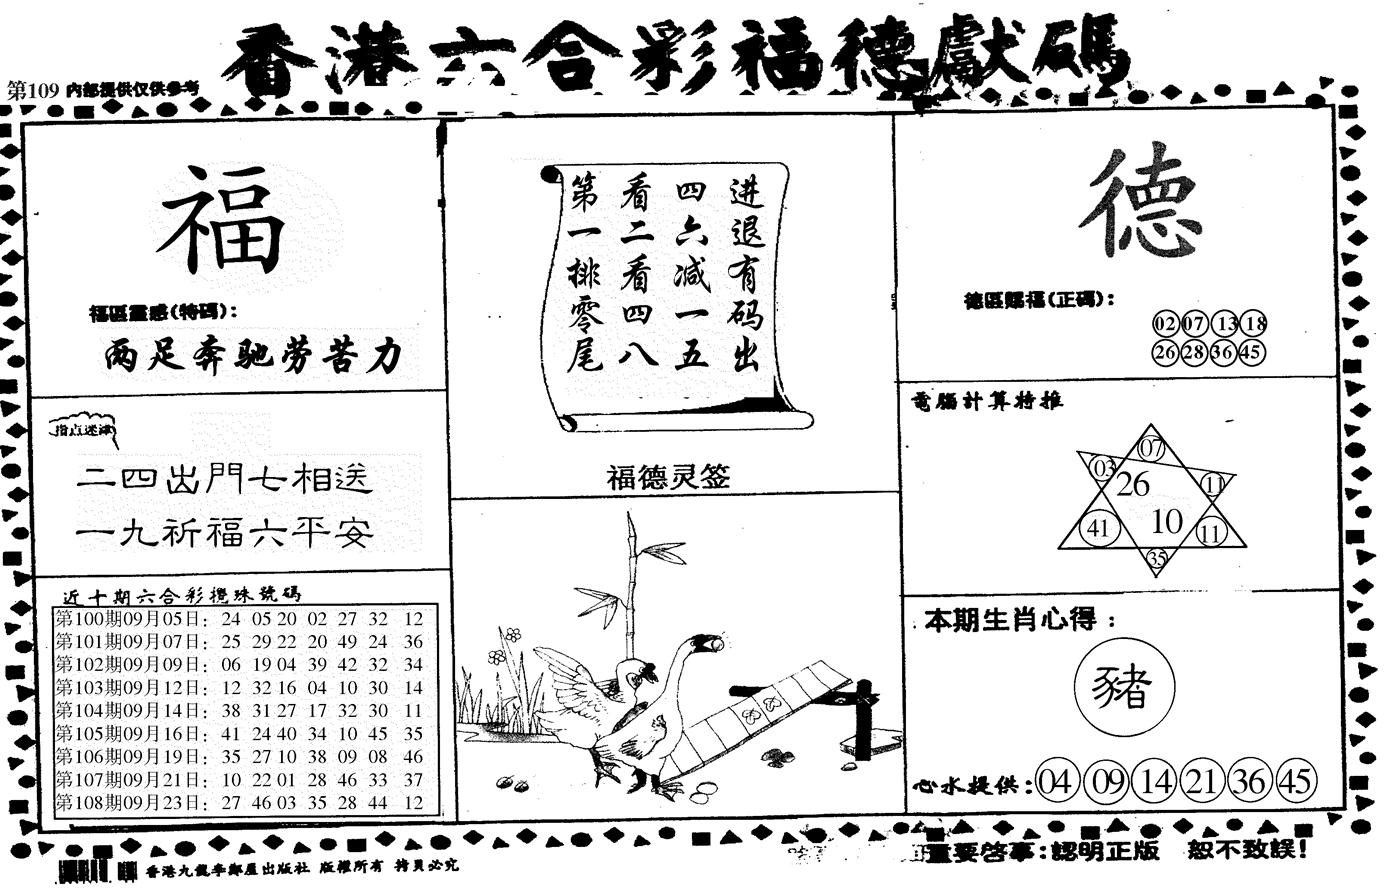 香港六合彩福德獻碼
第109 内部提供仅供参考
福
福區靈感(特碼):
两足奔驰劳苦力
指点迷津
二四出門七相送
一九祈福六平安
近十期六合彩攪珠號碼
第100期09月05日: 24 05 20 02 27 32 12
第101期09月07日: 25 29 22 20 49 24 36
第102期09月09日: 06 19 04 39 42 32 34
第103期09月12日: 12 32 16 04 10 30 14
第104期09月14日: 38 31 27 17 32 30 11
第105期09月16日: 41 24 40 34 10 45 35
第106期09月19日: 35 27 10 38 09 08 46
第107期09月21日: 10 22 01 28 46 33 37
第108期09月23日: 27 46 03 35 28 44 12
进退有码出
四六减一五
看二看四八
第一排零尾
福德灵签
德
德區賜福(正碼):
02 07 13 18
26 28 36 45
電腦計算特推
07
03
26
11
41
10
11
35
本期生肖心得:
豬
心水提供: 04 09 14 21 36 45
重要啓事:認明正版 恕不致誤!
香港九龍李鄭屋出版社 版權所有 拷貝必究